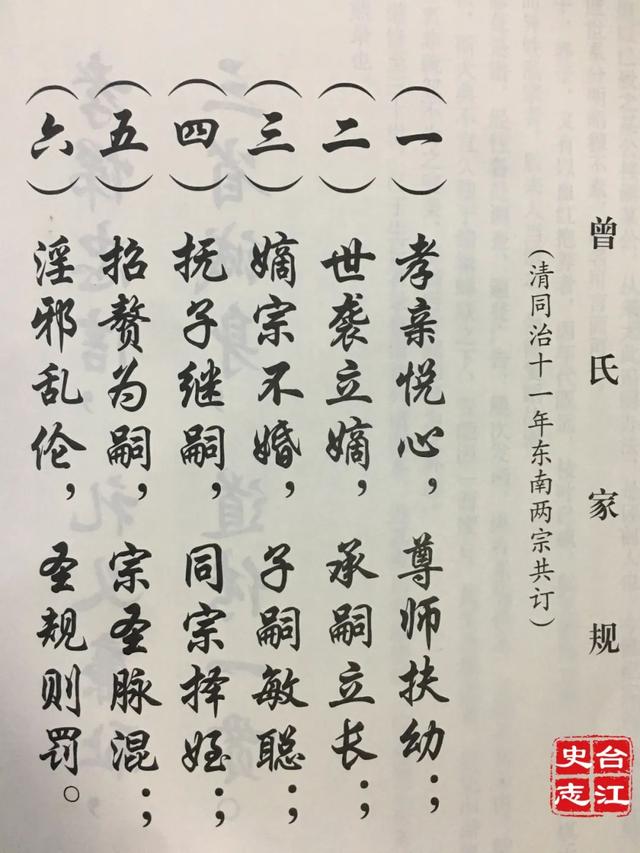 曾氏家规
（清同治十一年东南两宗共订）
（一）孝亲悦心，尊师扶幼；
（二）世袭立嫡，承嗣立长；
（三）嫡宗不婚，子嗣敏聪；
（四）抚子继嗣，同宗择侄；
（五）招赘为嗣，宗圣脉混；
（六）淫邪乱伦，圣规则罚。
台江
史志